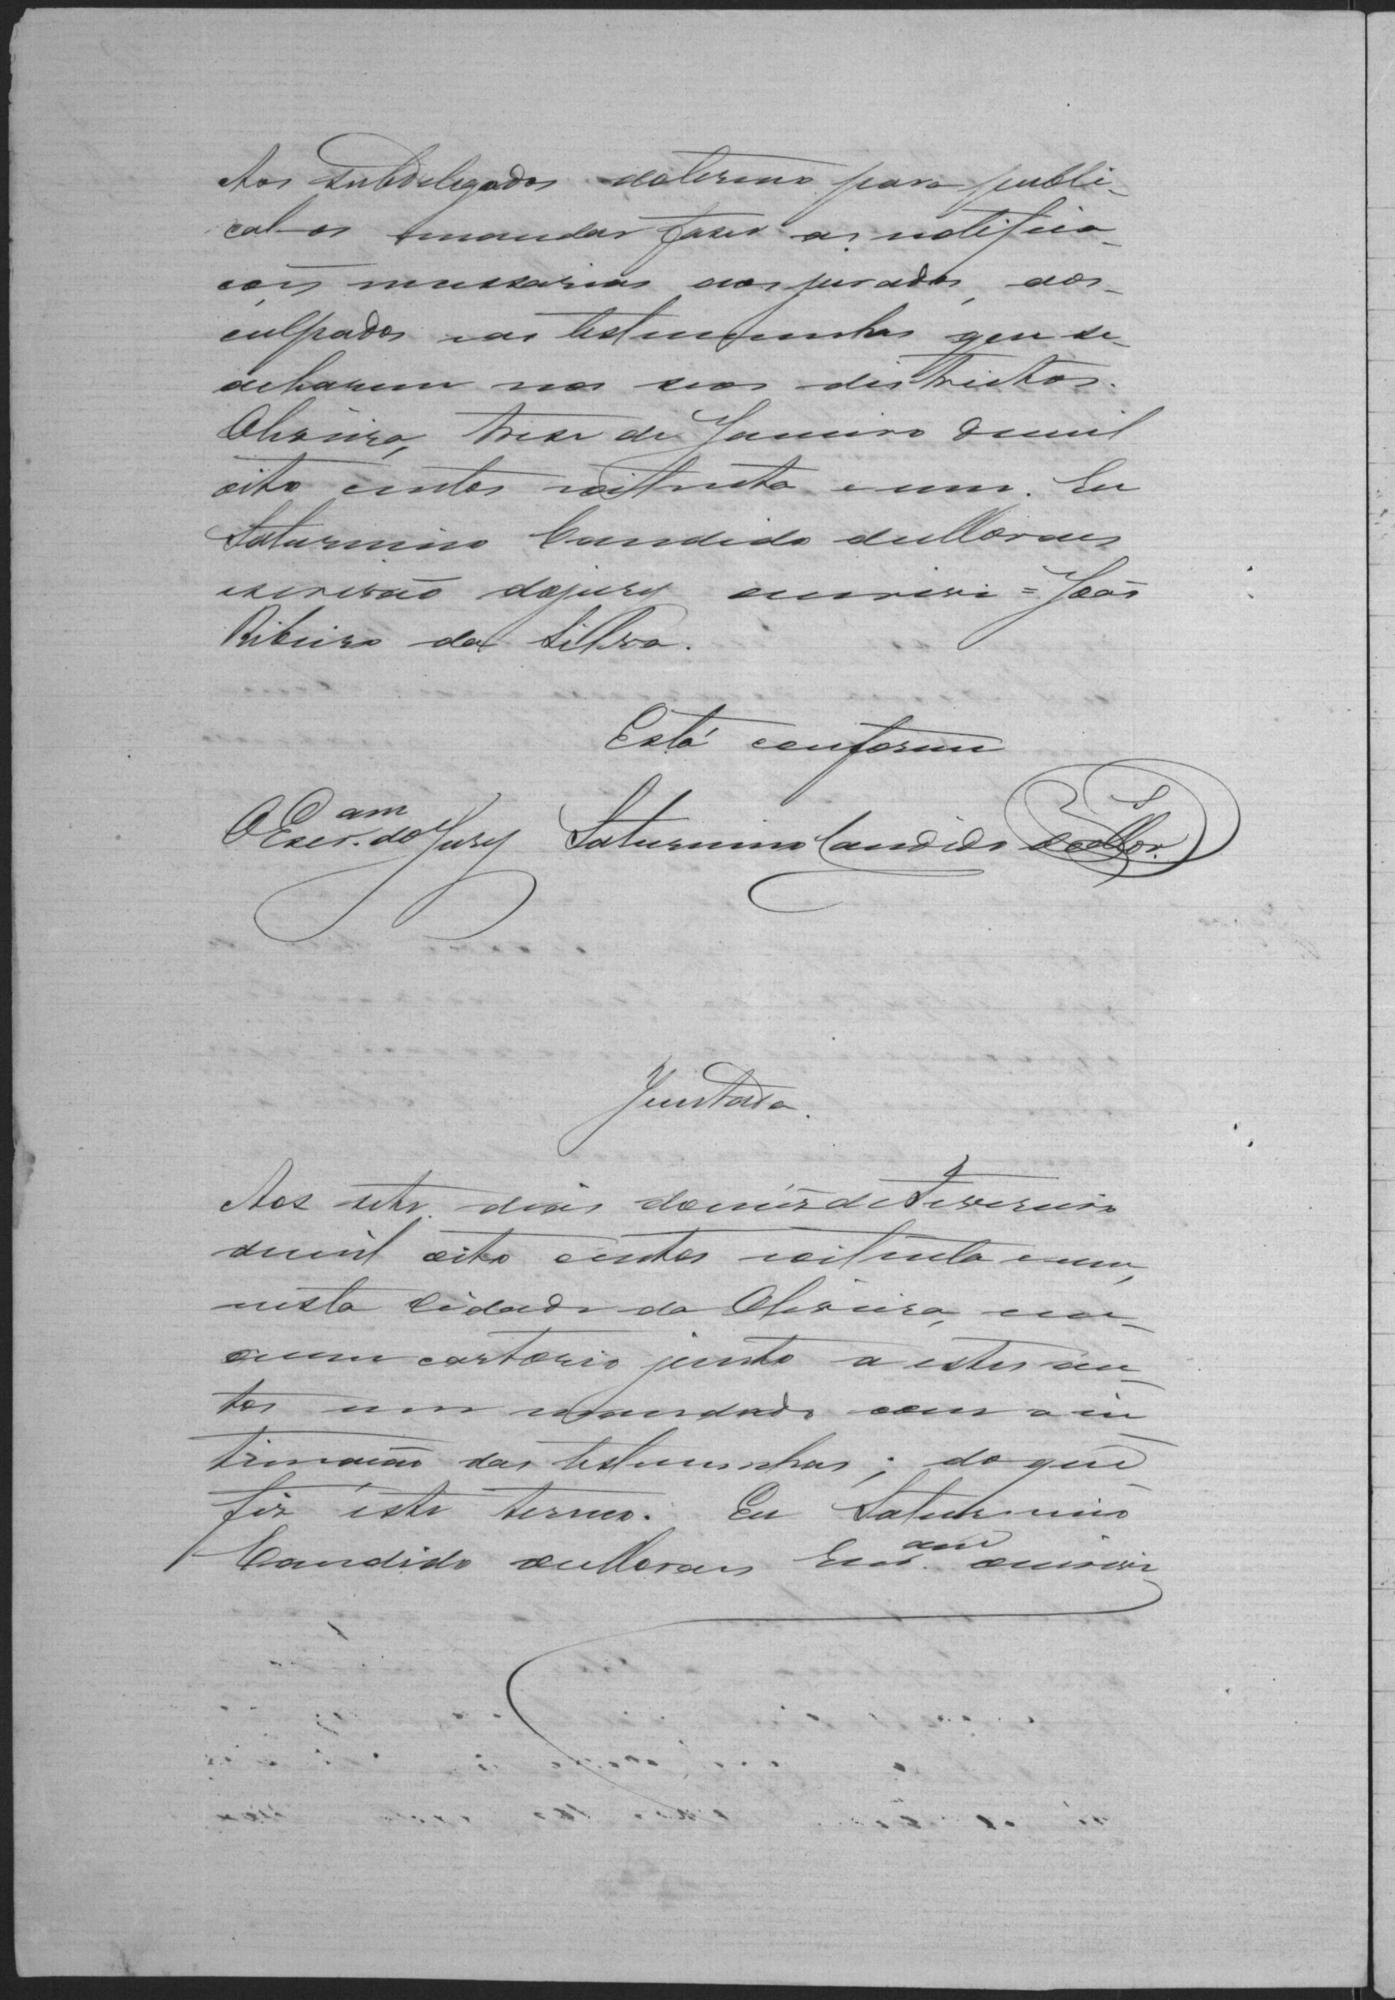 Aos subdelegados dotermo para publi-
cal-os emandar fazer as notifica-
ções necessarias aos jurados, aos-
culpados eas testemunhas que se-
acharem nos seos districtos.
Oliveira, treze de Janeiro demil
oito centos eoitenta e um. Eu
Saturnino Candido deMoraes
escrivão dojury escrevi = João
Ribeiro da Silva.
Está conforme
O Escr.am do Jury Saturnino Candido deMor.s
Juntada.
Aos sete dias domêz deFevereiro
demil oito centos eoitenta eum,
nesta Cidade da Oliveira, em-
meu cartorio junto a estes au-
tos um mandado com a in
timação das testemunhas; do que
fiz este termo. Eu Saturnino
Candido deMoraes Escr.am escrevi